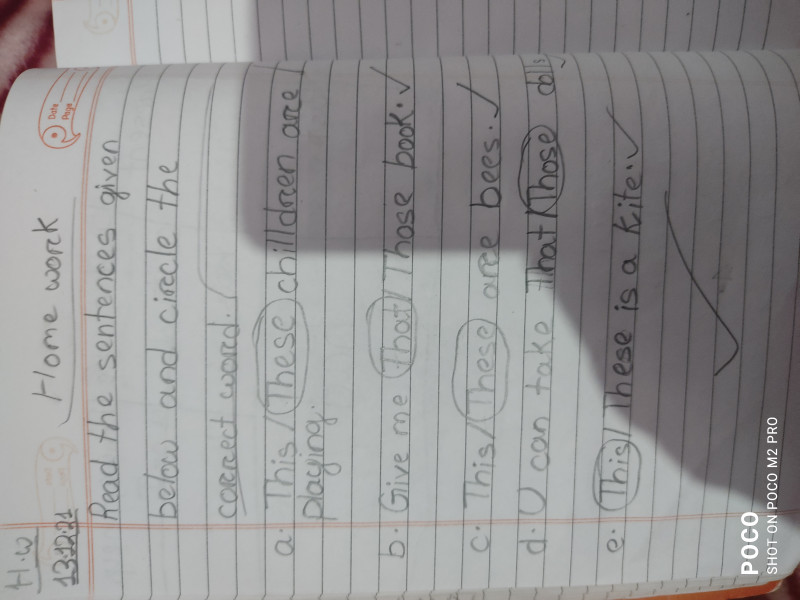 H.W
13.12.21
Home work
Date
Page
Read the sentences given
below and circle the
correct word.
a. This / These chilldren are
playing.
b. Give me That / Those book.
c. This / These are bees.
d. U can take that / Those dolls
e. This / These is a kite.
POCO
SHOT ON POCO M2 PRO